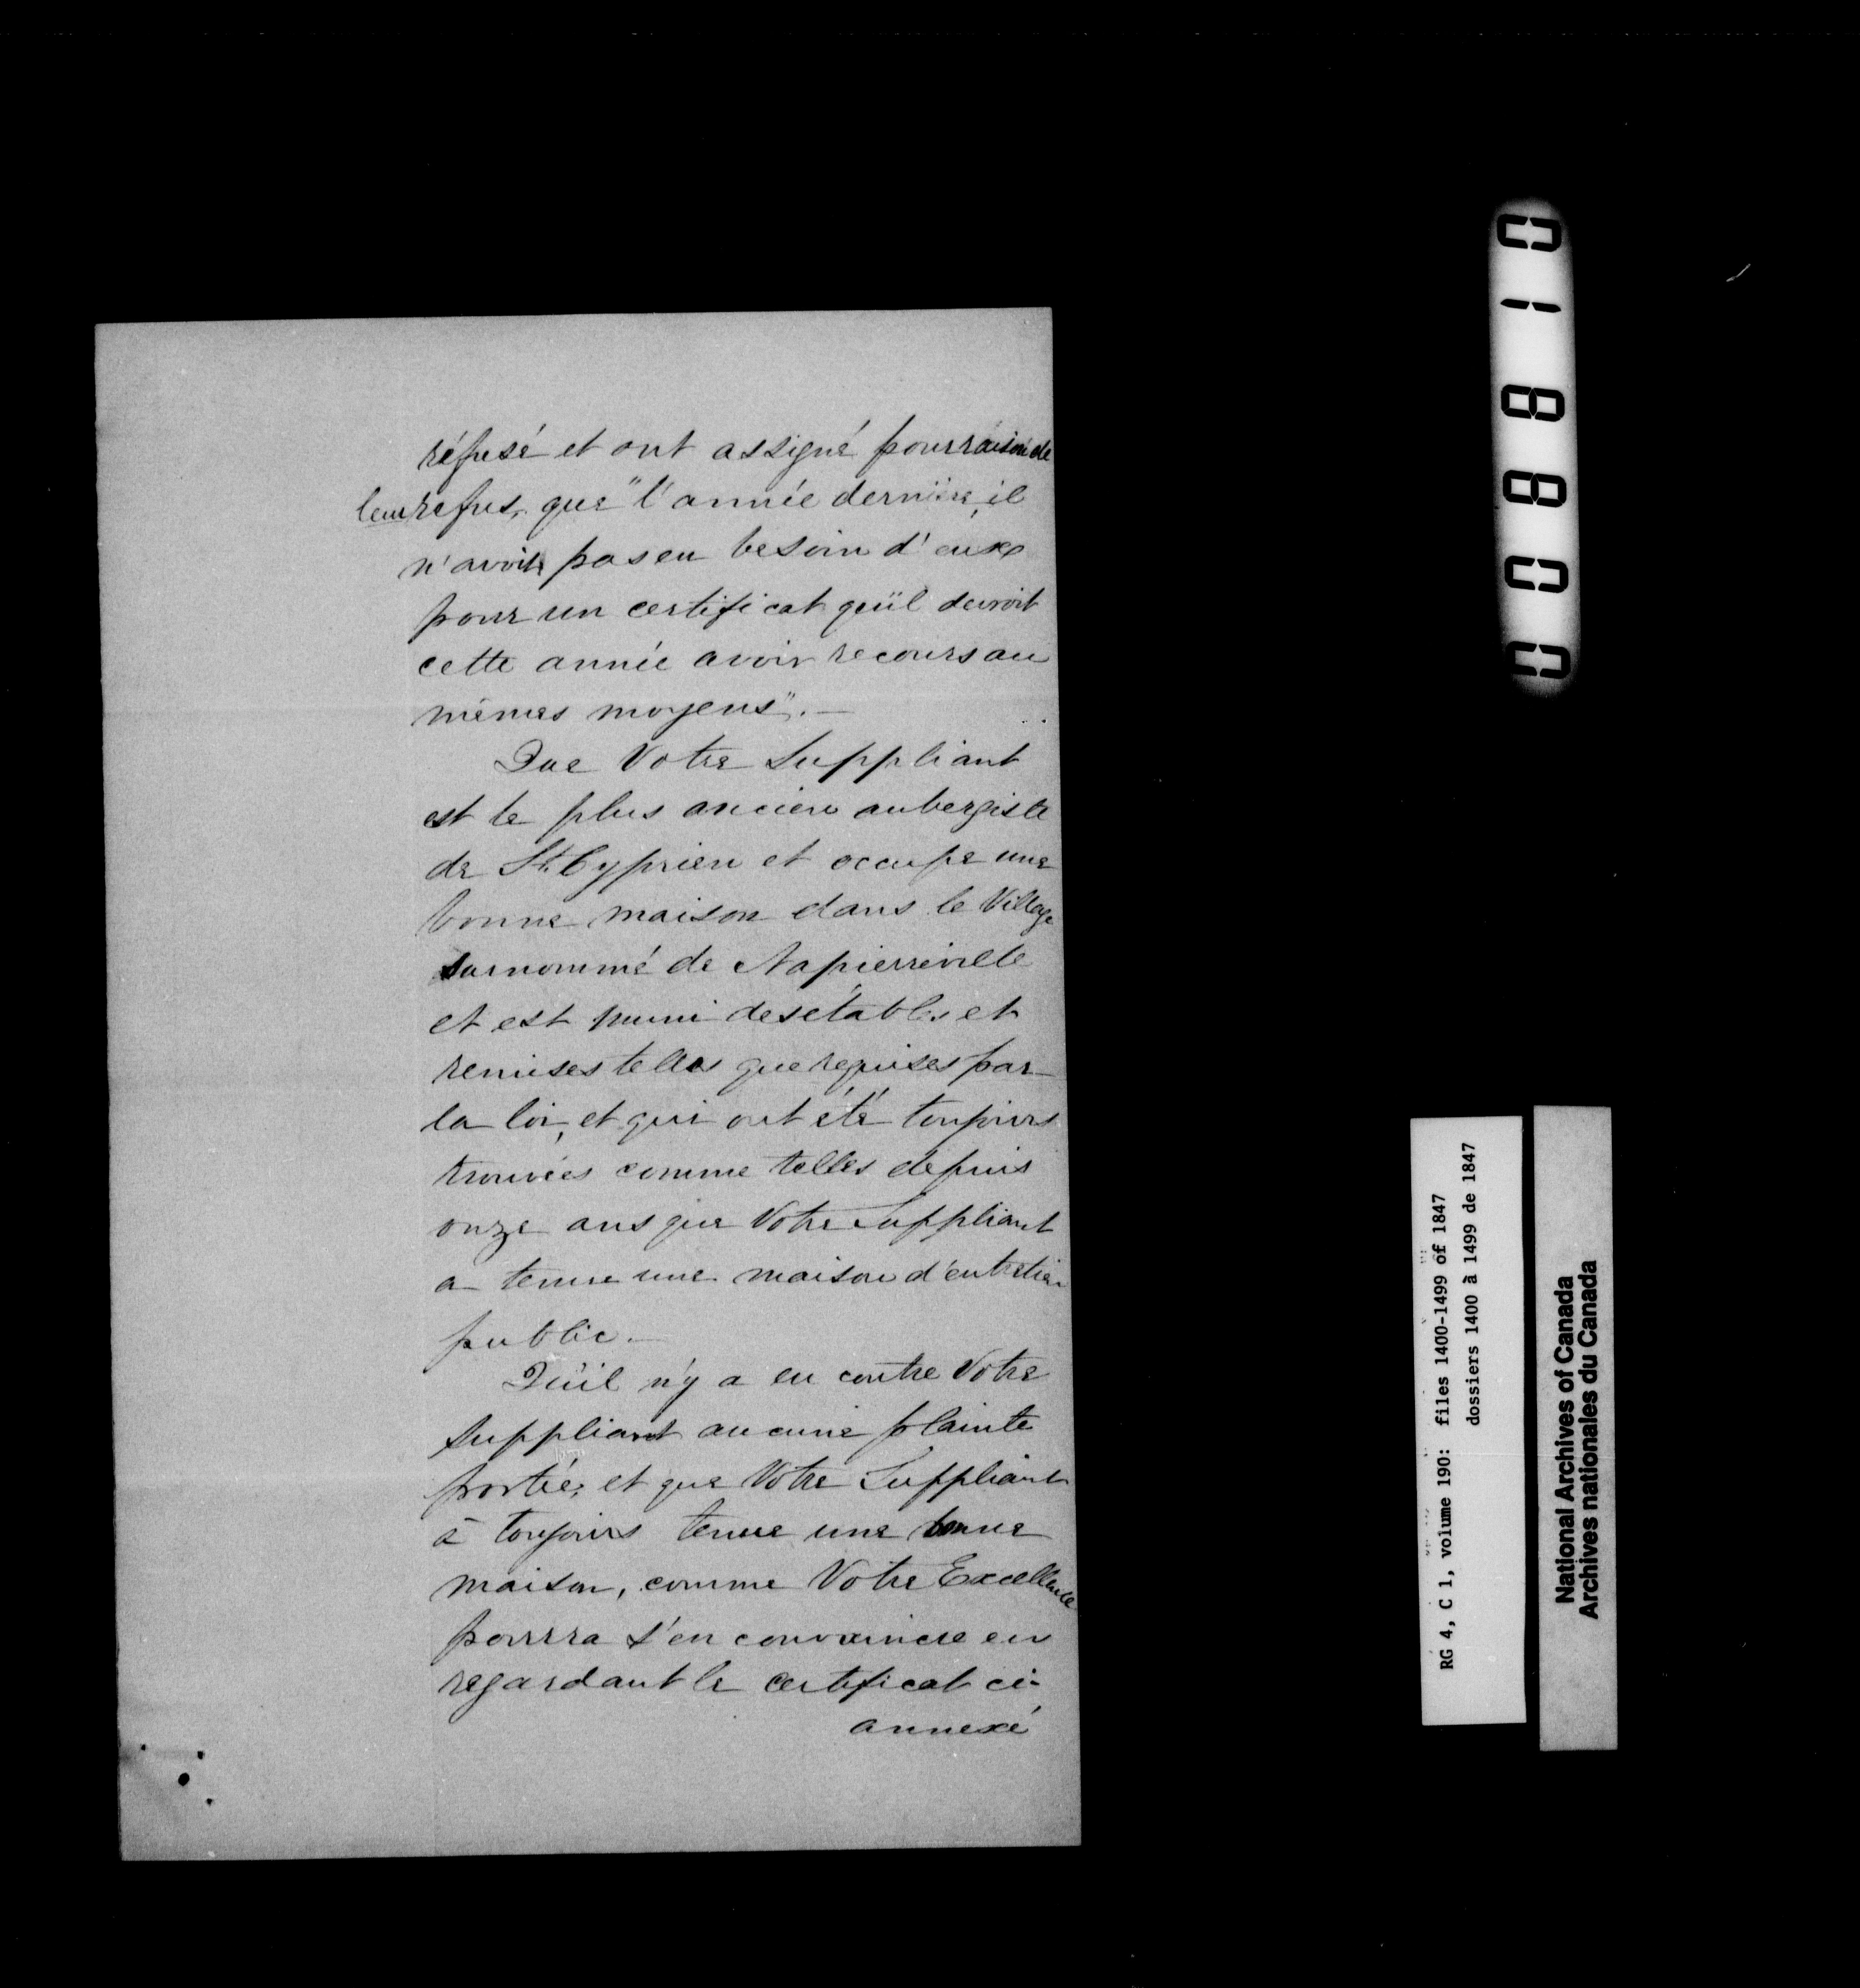 réfusé et ont assigné pour raison de
leur refus, que "l'année dernière, il
n'avoit pas eu besoin d'eux
pour un certificat qu'il devroit
cette année avoir recours au
mêmes moyens". —
Que Votre Suppliant
est le plus ancien aubergiste
de St. Cyprien et occupe une
bonne maison dans le Village
surnommé de Napierreville
et est muni des étables et
remises telles que requises par
la loi, et qui ont été toujours
trouvées comme telles depuis
onze ans que Votre Suppliant
a tenue une maison d'entretien
public. —
Qu'il n'y a eu contre Votre
Suppliant aucune plainte
portée, et que Votre Suppliant
à toujours tenue une bonne
maison, comme Votre Excellence
pourra s'en convaincre en
regardant le certificat ci-
annexé
008810
RG 4, C 1, volume 190: files 1400-1499 of 1847
dossiers 1400 à 1499 de 1847
National Archives of Canada
Archives nationales du Canada